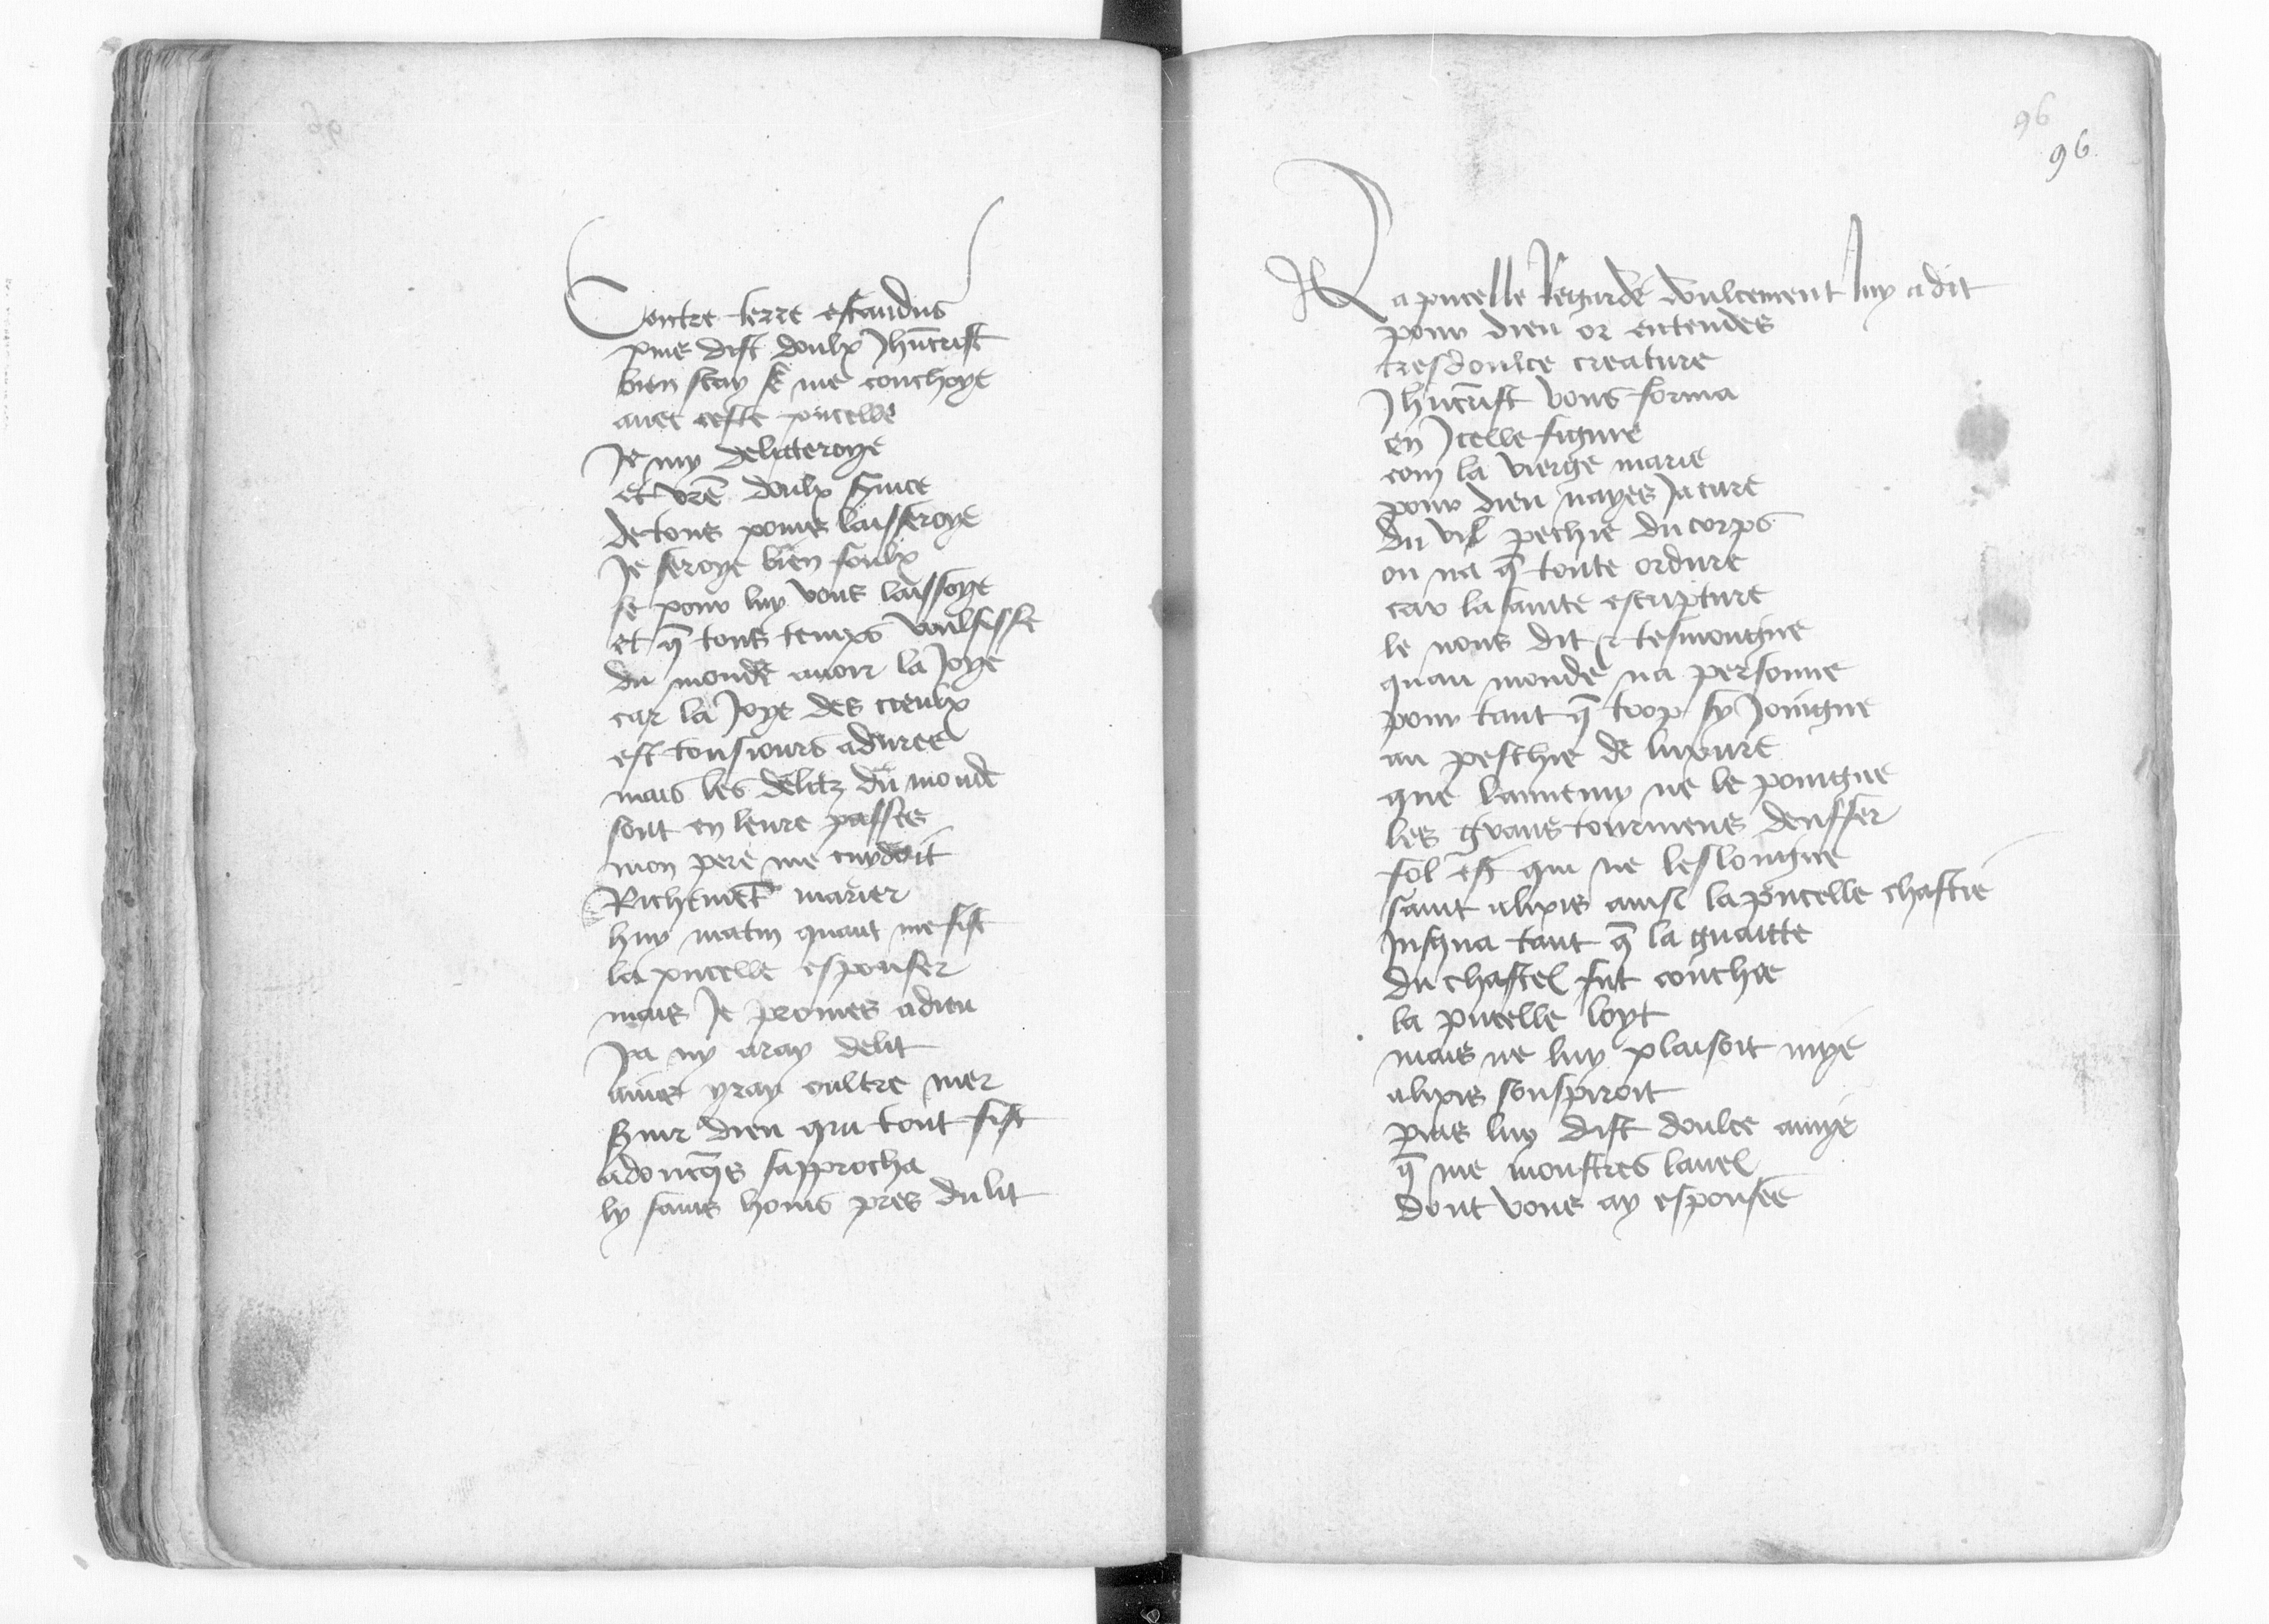 Contre terre estandus
puis dist doulx Jhūcrist
bien scay se me couchoye
auec ceste pucelle
Je my delitteroye
et vrē doulx suice
de tous poins laisseroye
Je seroye bien foulx
se pour luy vous laissoye
et q̄ tous temps voulsisse
du monde auoir la Joye
car la Joye des cieulx
est tousiours a duree
mais les delitz du monde
sont en leure passes
mon pere me cuydoit
Richemēt marier
huy matin quant me fist
la pucelle espouser
mais Je promes a dieu
Ja ny aray delit
ains yray oultre mer
suir dieu qui tout fist
adoncq̄s sapprocha
ly sains homs pres du lit
96
96
La pucelle Regarde doulcement luy a dit
pour dieu or entendes
tresdoulce creature
Jhūcrist vous forma
en Jcelle figure
com la vierge marie
pour dieu nayes Ja cure
du vil pechie du corps
ou na q̄ toute ordure
car la sainte escripture
le nous dit et tesmoingne
quau monde na personne
pour tant q̄ trop sy Joingne
au peschie de luxure
que lannemy ne le poingne
les grans tourmens denffer
fol est qui ne leslongne
saint alixis ainsi la pucelle chastie
Jusqua tant q̄ la guaitte
du chastel fut couchie
la pucelle loyt
mais ne luy plaisoit mye
alixis souspiroit
puis luy dist doulce amye
q̄ me monstres lanel
dont vous ay espousee